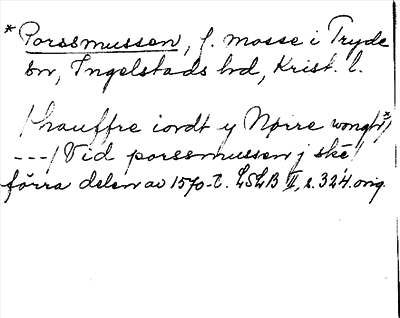 *Porssmussen, f. mosse i Tryde
sn, Ingelstads hd, Krist. l.
/hauffre iordt y Nørre wong
---/ Vid porssmussen j skè/
förra delen av 1570-t. LSLB II, s. 324. orig.